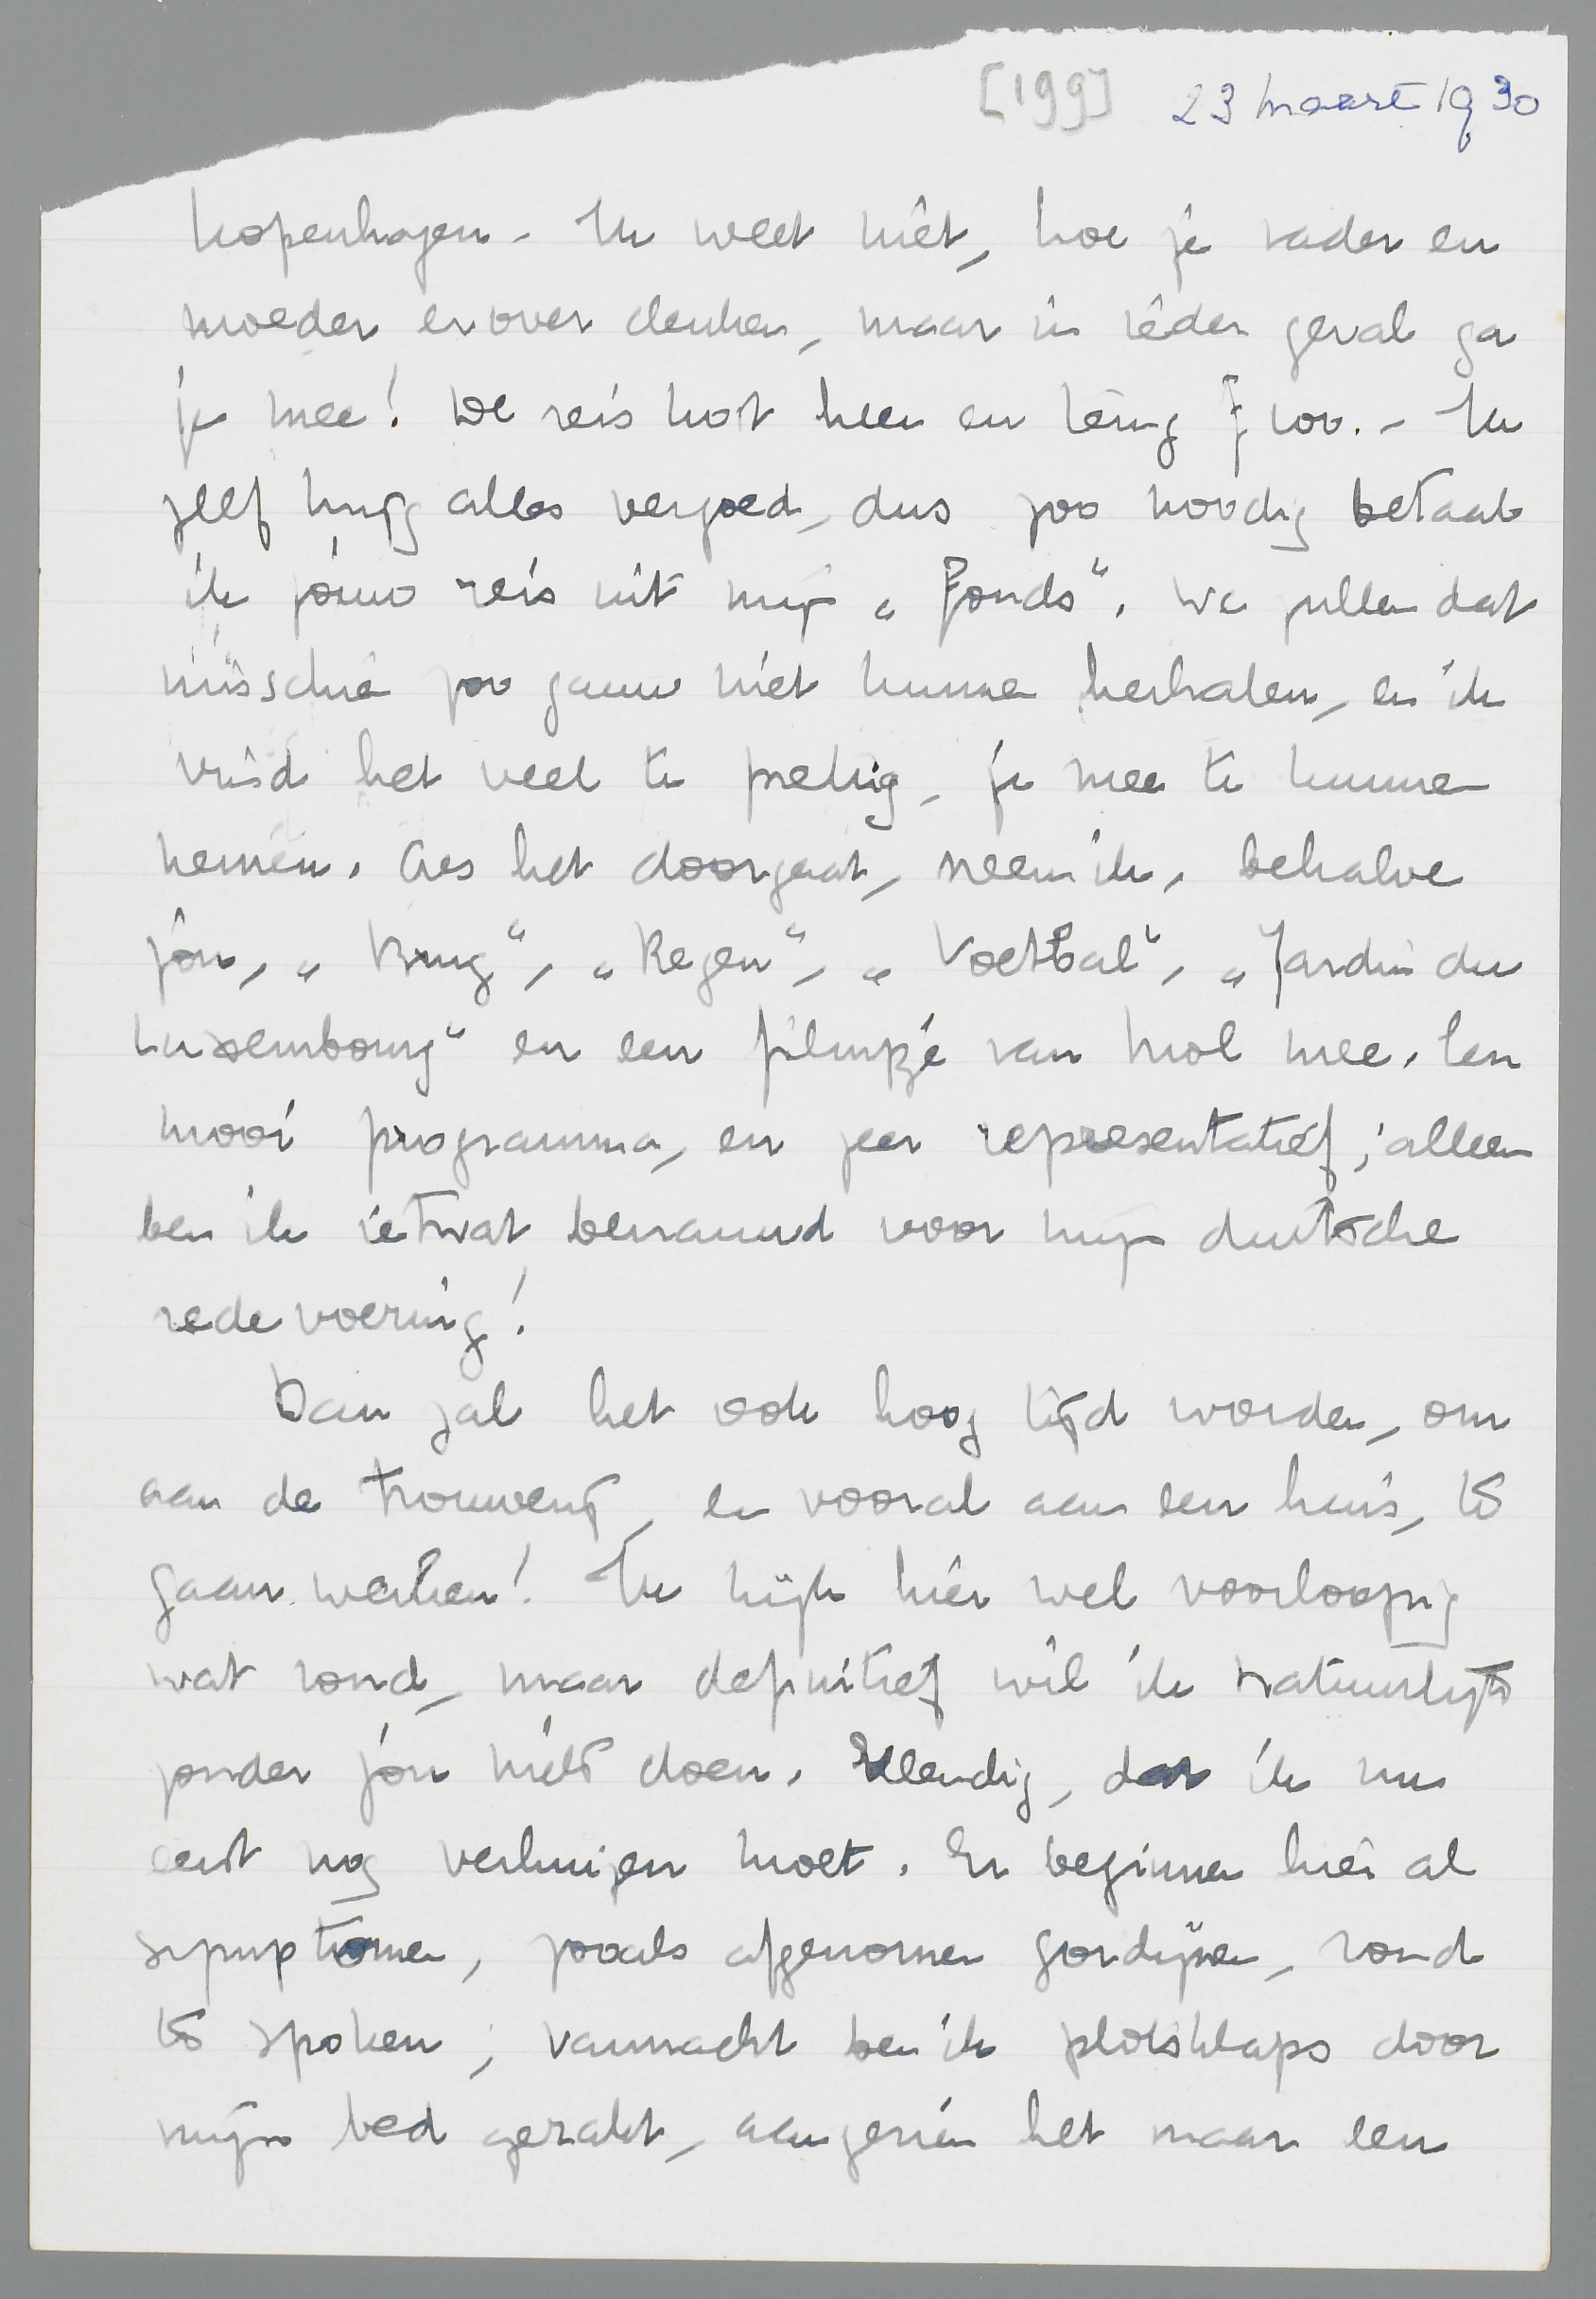 [199] 23 maart 1930
Kopenhagen. Ik weet niet, hoe je vader en
moeder erover denken, maar in ieder geval ga
je mee! De reis kost heen en terug f 100. - Ik
zelf krijg alles vergoed, dus zoo noodig betaal
ik jóuw reis uit mijn „Fonds". We zullen dat
misschien zoo gauw niet kunnen herhalen, en ik
vind het veel te prettig, je mee te kunnen
nemen. Als het doorgaat, neem ik, behalve
jou, „Brug", „Regen", „Voetbal", „Jardin du
Luxembourg" en een filmpje van Mol mee. Een
mooi programma, en zeer representatief; alleen
ben ik ietwat benauwd voor mijn duitsche
redevoering!
Dan zal het ook hoog tijd worden, om
aan de trouwerij, en vooral aan een huis, te
gaan werken! Ik kijk hier wel voorloopig
wat rond, maar definitief wil ik natuurlijk
zonder jou niets doen. Ellendig, dat ik nu
eerst nog verhuizen moet. Er beginnen hier al
symptomen, zooals afgenomen gordijnen, rond
te spoken; vannacht ben ik plotsklaps door
mijn bed gezakt, aangezien het maar een